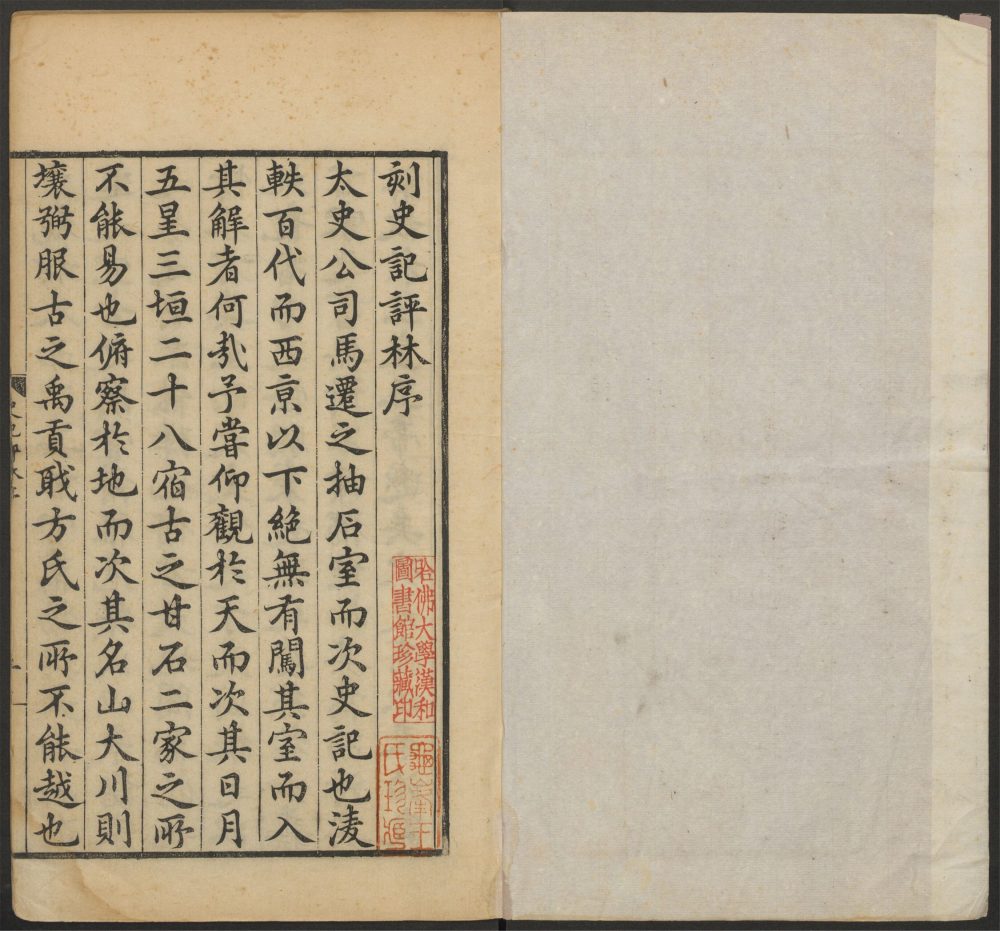 刻史記評林序
太史公司馬遷之抽石室而次史記也淩
軼百代而西京以下絕無有闖其室而入
其解者何㢤予甞仰觀於天而次其日月
五星三垣二十八宿古之甘石二家之所
不能易也俯察於地而次其名山大川則
壤弼服古之禹貢職方氏之所不能越也
哈佛大學漢和
圖書館珍藏印